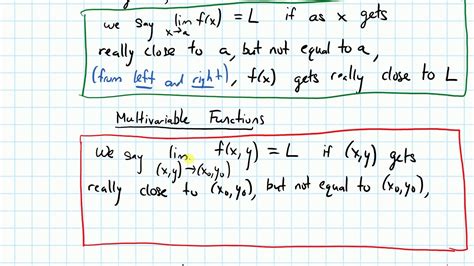 we say lim f(x) = L if as x gets
x→a
really close to a, but not equal to a,
(from left and right), f(x) gets really close to L
Multivariable Functions
We say lim f(x,y) = L if (x,y) gets
(x,y)→(x₀,y₀)
really close to (x₀,y₀), but not equal to (x₀,y₀),